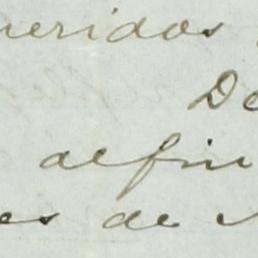 ueridos
De
defin
es de